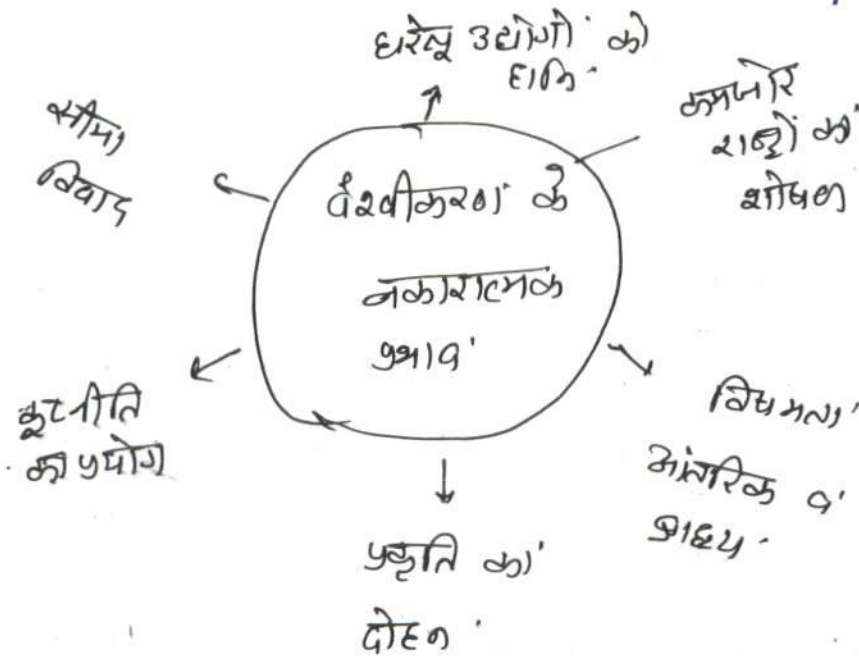 घरेलू उद्योगों को
हानि
कमजोर
राष्ट्रों का
शोषण
सीमा
विवाद
वैश्वीकरण के
नकारात्मक
प्रभाव
कूटनीति
का प्रयोग
विषमता
आंतरिक व
बाह्य
प्रकृति का
दोहन